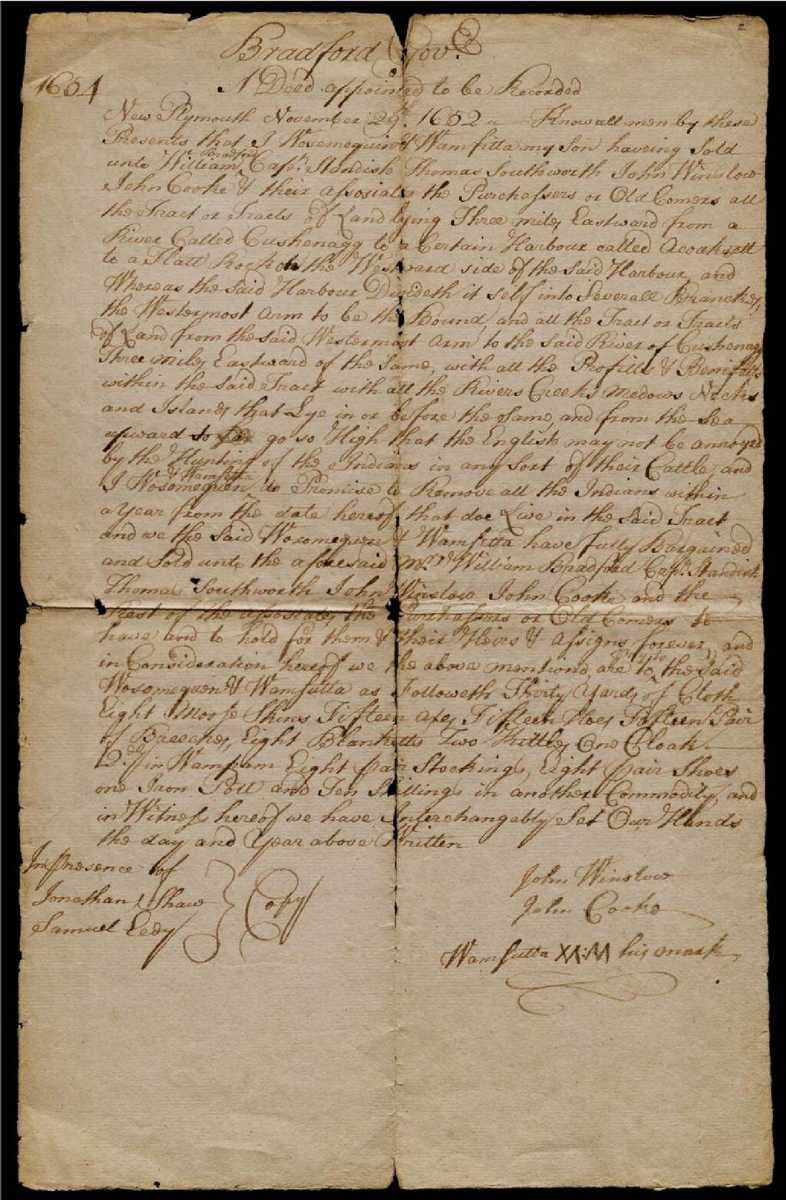 2
Bradford Govr
1654
A Deed appointed to be Recorded
New Plymouth November 29th 1652 Know all men by these
Presents that I Wosemequin & Wamsutta my Son haveing Sold
Bradford
unto William Capt Standish Thomas Southworth John Winslow
John Cooke & their Assosiates the Purchassers or Old Comers all
the Tract or Tracts of Land lying Three miles Eastward from a
River Called Cushenagg to a Certain Harbour called Acoaksett
to a Flatt Rock on the Westward side of the said Harbour, and
Whereas the Said Harbour Devideth it self into Severall Branches,
the Westermost Arm to be the Bound, and all the Tract or Tracts
of Land from the said Westermost Arm to the Said River of Cushenagg
Three miles Eastward of the Same, with all the Profitts & Benifitts
within the said Tract with all the Rivers Creeks Medows Necks
and Islands that Lye in or before the Same, and from the Sea
upward to go so High that the English may not be annoyed
by the Hunting of the Indians in any Sort of their Cattle, and
& Wamsutta
I Wosomequen do Promise to Remove all the Indians within
a year from the date hereof that doe Live in the Said Tract
and we the Said Wosomequen & Wamsutta have fully Bargained
and Sold unto the aforesaid Mr William Bradford Capt Standish
Thomas Southworth John Winslow John Cooke and the
Rest of the Assosiates the Purchassers or Old Comers to
have and to hold for them & their Heirs & Assigns forever, and
in Consideration hereof we the above mentiond, are to the Said
Wosomequen & Wamsutta as Followeth Thirty Yards of Cloth
Eight Moose Skins Fifteen Axes Fifteen Hoes Fifteen Pair
of Breeches, Eight Blanketts Two Kittles One Cloak
in Wampam Eight pair Stockings, Eight pair Shoes
one Iron Pott and Ten Shillings in another Commodity, and
in Witness hereof we have Interchangably Set Our Hands
the day and Year above Written
In Presence of
Jonathan Shaw
Samuel Eedy
Copy
John Winslow
John Cooke
Wamsutta his mark